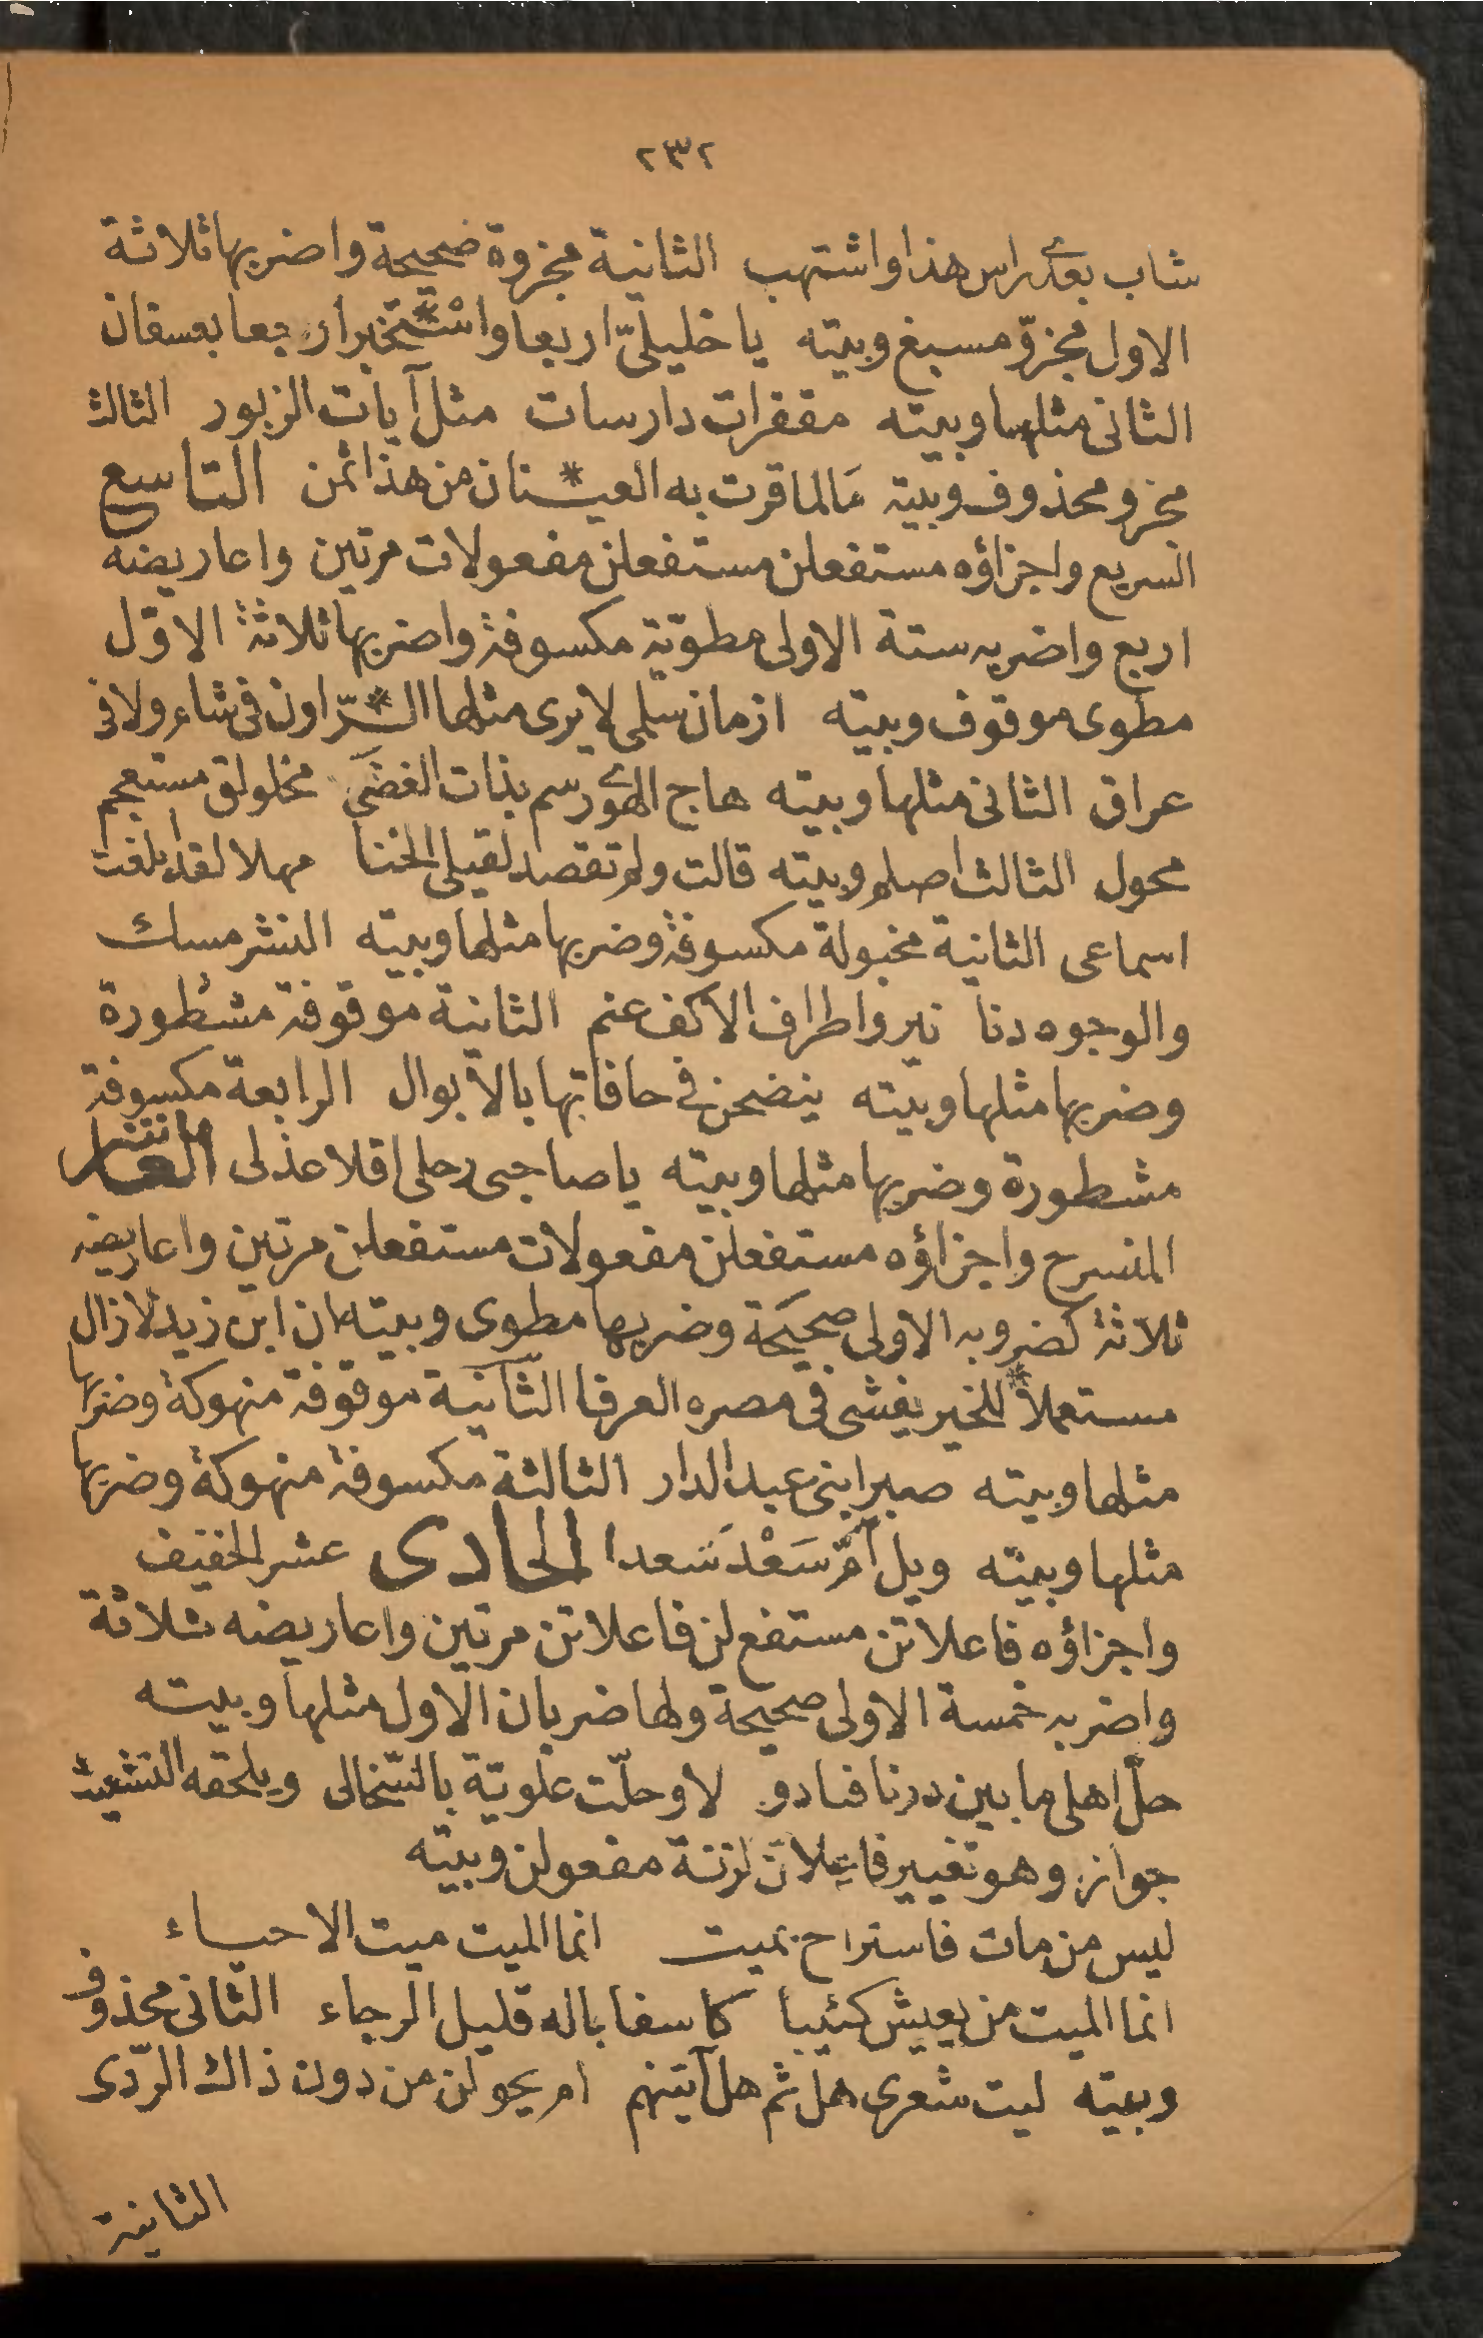 ٢٣٢
شاب بعدے راس هذا واشتهب الثانية مجزوة صحيحة واضربها ثلاثة
الاول مجزوّ مسبغ وبيته يا خليليّ اربعا واسْتَخبرا ربعا بعسفان
الثانى مثلها وبيته مقفرات دارسات مثل آيات الزبور الثالث
مجزو محذوف وبيته مَا لما قرت به العينان من هذا ثمن التاسع
السريع واجزاؤه مستفعلن مستفعلن مفعولات مرتين واعاريضه
اربع واضربه ستة الاولى مطويّة مكسوفة واضربها ثلاثة الاوّل
مطوى موقوف وبيته ازمان سلمى لا يرى مثلها الرّاون فى شاء ولا فى
عراق الثانى مثلها وبيته هاج الهوے رسم بذات الغضَى مخلولق مستعجم
محول الثالث اصلم وبيته قالت ولم تقصد لقيل الخنا مهلا لقد ابلغت
اسماعى الثانية مخبولة مكسوفة وضربها مثلها وبيته النشر مسك
والوجوه دنا نير واطراف الاكف عنم الثانية موقوفة مشطورة
وضربها مثلها وبيته ينضحن فى حافاتها بالابوال الرابعة مكسوفة
مشطورة وضربها مثلها وبيته يا صاحبى رحلى اقلا عذلى العاشر
المنسرح واجزاؤه مستفعلن مفعولات مستفعلن مرتين واعاريضه
ثلاثة كضروبه الاولى صحيحَة وضربها مطوى وبيته ان ابن زيد لازال
مستعملاً للخير يفشى فى مصره العرفا الثانية موقوفة منهوكة وضربها
مثلها وبيته صبرا بنى عبد الدار الثالثة مكسوفة منهوكة وضربها
مثلها وبيته ويل امّ سَعْدَ سَعدا الحادى عشر الخفيف
واجزاؤه فاعلاتن مستفع لن فاعلاتن مرتين واعاريضه ثلاثة
واضربه خمسة الاولى صحيحة ولها ضربان الاول مثلها وبيته
حلّ اهلى ما بين درنا فبادو لا وحلّت علويّة بالسّخالى ويلحقه التشعيث
جواز وهو تغيير فاعلاتن لزنة مفعولن وبيته
ليس من مات فاستراح بميت انما الميت ميت الاحياء
انما الميت من يعيش كئيبا كاسفا باله قليل الرجاء الثانى محذوف
وبيته ليت شعرى هل ثم هل آتينهم ام يحولن من دون ذاك الرّدى
الثانية